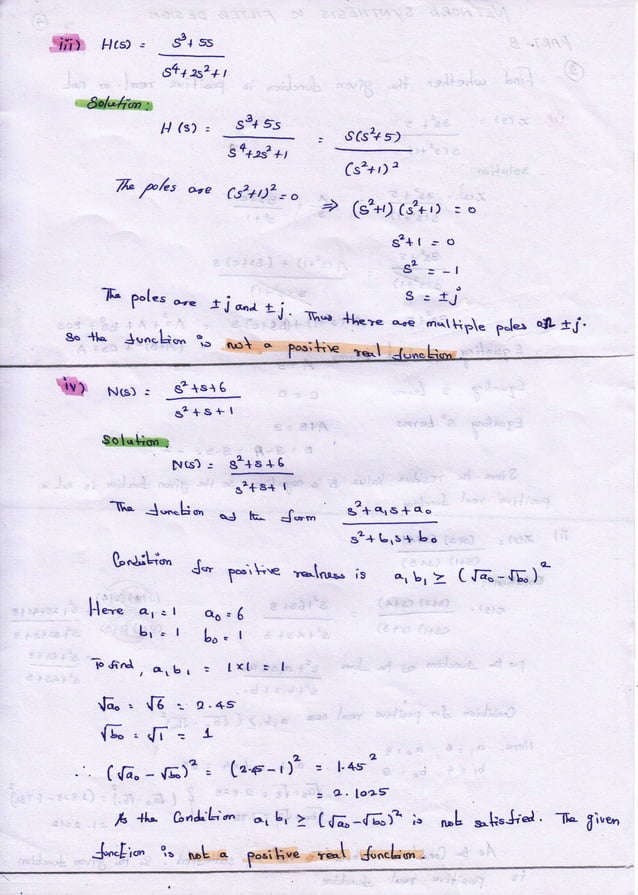 iii) H(s) = S³+5S / S⁴+2S²+1
Solution:
H(s) = S³+5S / S⁴+2S²+1 = S(S²+5) / (S²+1)²
The poles are (S²+1)² = 0 ⇒ (S²+1)(S²+1) = 0
S²+1 = 0
S² = -1
S = ±j
The poles are ±j and ±j. Thus there are multiple poles on ±j.
So the function is not a positive real function.
iv) N(s) = S²+S+6 / S²+S+1
Solution:
N(s) = S²+S+6 / S²+S+1
The function as the form S²+a₁S+a₀ / S²+b₁S+b₀
Condition for positive realness is a₁b₁ ≥ (√a₀-√b₀)²
Here a₁ = 1 a₀ = 6
b₁ = 1 b₀ = 1
To find, a₁b₁ = 1×1 = 1
√a₀ = √6 = 2.45
√b₀ = √1 = 1
∴ (√a₀-√b₀)² = (2.45-1)² = 1.45²
= 2.1025
As the Condition a₁b₁ ≥ (√a₀-√b₀)² is not satisfied. The given
function is not a positive real function.